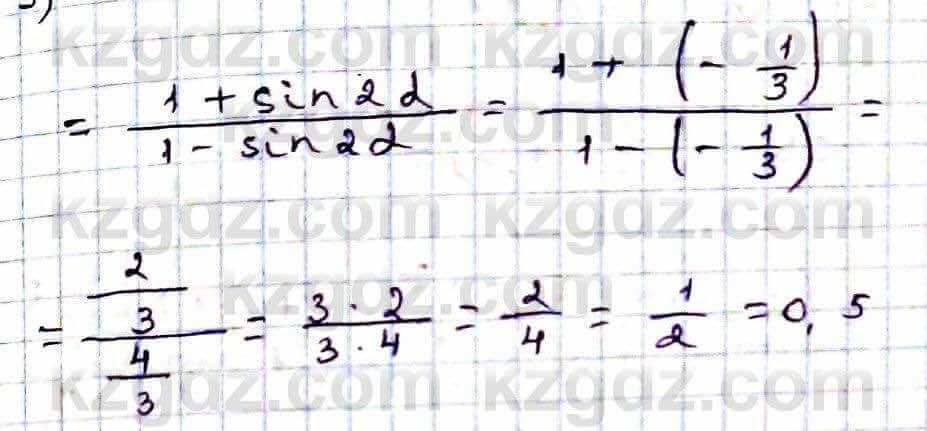 5)
= (1 + sin 2α)/(1 - sin 2α) = (1 + (- 1/3))/(1 - (- 1/3)) =
= (2/3)/(4/3) = (3 · 2)/(3 · 4) = 2/4 = 1/2 = 0,5
kzgdz.com kzgdz.com
kzgdz.com
kzgdz.com kzgdz.com
kzgdz.com
kzgdz.com kzgdz.com